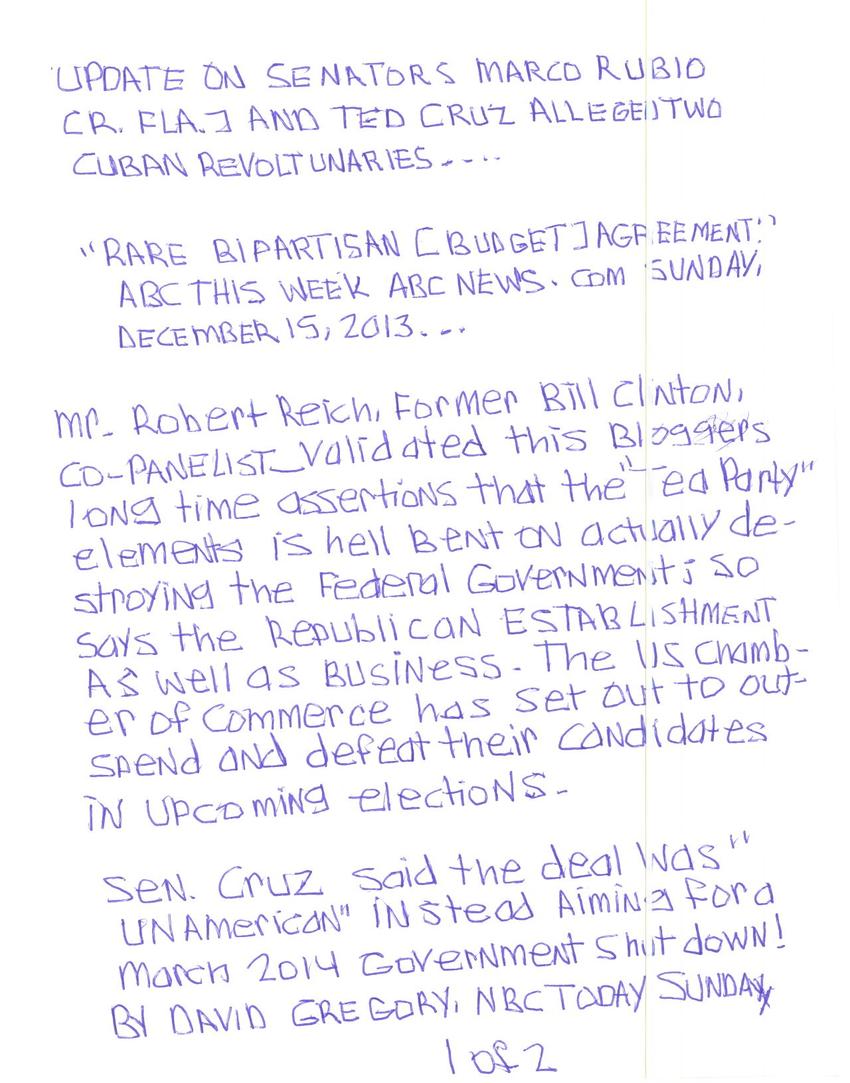 UPDATE ON SENATORS MARCO RUBIO
CR. FLA.] AND TED CRUZ ALLEGED TWO
CUBAN REVOLTUNARIES....
"RARE BIPARTISAN [BUDGET] AGREEMENT."
ABC THIS WEEK ABC NEWS. COM SUNDAY,
DECEMBER 15, 2013...
Mr. Robert Reich, Former Bill Clinton,
CO-PANELIST_validated this Bloggers
long time assertions that the "Tea Party"
elements is hell Bent on actually de-
stroying the Federal Government; so
says the Republican ESTABLISHMENT
As well as BUSINESS. The US Chamb-
er of Commerce has set out to out-
spend and defeat their candidates
in upcoming elections.
Sen. Cruz said the deal was "
UNAmerican" instead Aiming for a
March 2014 Government shut down!
BY DAVID GREGORY, NBC TODAY SUNDAY
1 of 2